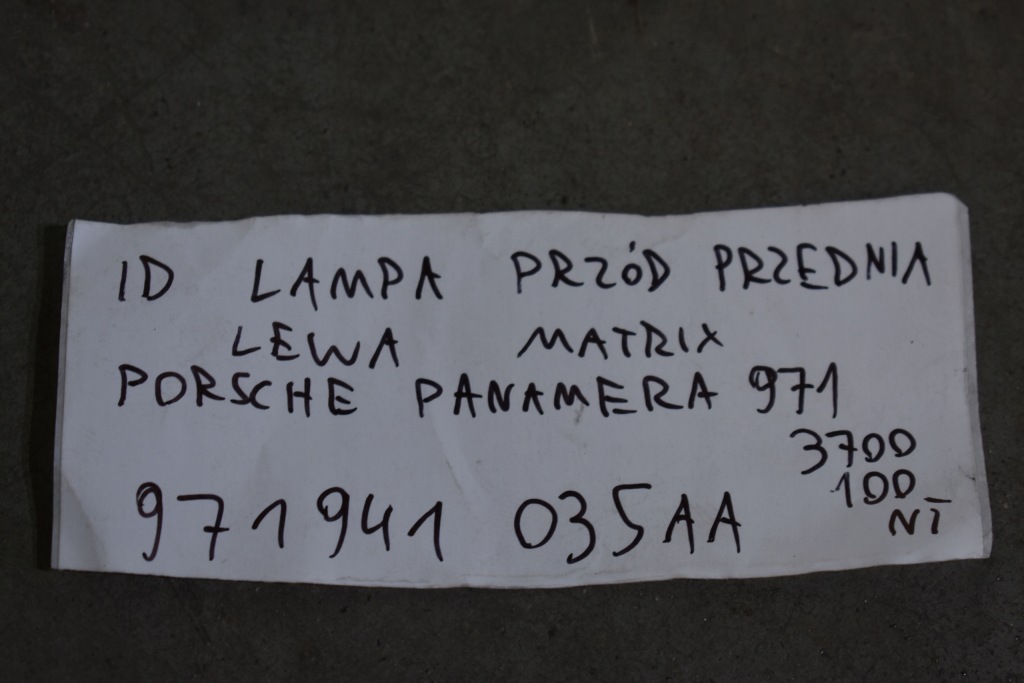 ID LAMPA PRZÓD PRZEDNIA
LEWA MATRIX
PORSCHE PANAMERA 971
3700
100
NT
971941 035AA